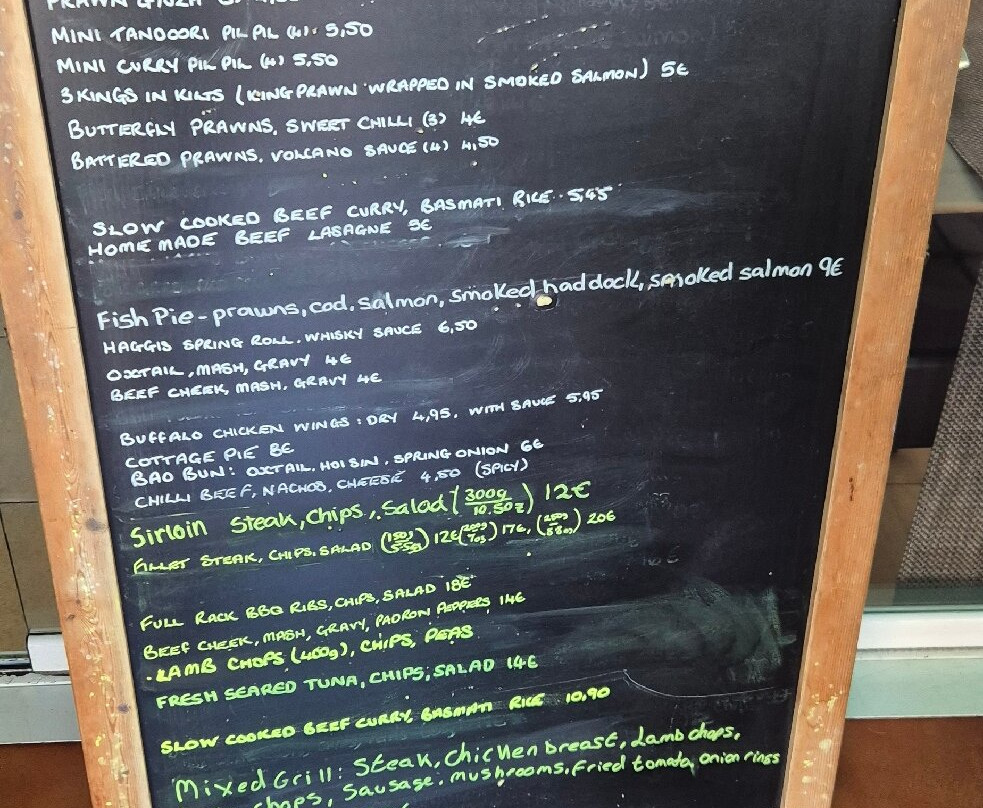 PRAWN
MINI TANDOORI PIL PIL (4). 5,50
MINI CURRY PIL PIL (4) 5,50
3 KINGS IN KILTS (KING PRAWN WRAPPED IN SMOKED SALMON) 5€
BUTTERFLY PRAWNS, SWEET CHILLI (3) 4€
BATTERED PRAWNS, VOLCANO SAUCE (4) 4,50
SLOW COOKED BEEF CURRY, BASMATI RICE . 5,45
HOME MADE BEEF LASAGNE 9€
Fish Pie - prawns, cod, salmon, smoked haddock, smoked salmon 9€
HAGGIS SPRING ROLL. WHISKY SAUCE 6,50
OXTAIL, MASH, GRAVY 4€
BEEF CHEEK, MASH, GRAVY 4€
BUFFALO CHICKEN WINGS : DRY 4,95. WITH SAUCE 5,95
COTTAGE PIE 8€
BAO BUN: OXTAIL, HOISIN, SPRING ONION 6€
CHILLI BEEF, NACHOS, CHEESE 4,50 (SPICY)
Sirloin Steak, Chips, Salad (300g/10.50z) 12€
FILLET STEAK, CHIPS, SALAD 12€ 17€, 20€
FULL RACK BBQ RIBS, CHIPS, SALAD 18€
BEEF CHEEK, MASH, GRAVY, PADRON PEPPERS 14€
. LAMB CHOPS (400g), CHIPS, PEAS
FRESH SEARED TUNA, CHIPS, SALAD 14€
SLOW COOKED BEEF CURRY, BASMATI RICE 10,90
Mixed Grill: Steak, Chicken breast, Lamb chops,
chops, Sausage, mushrooms, Fried tomato, onion rings